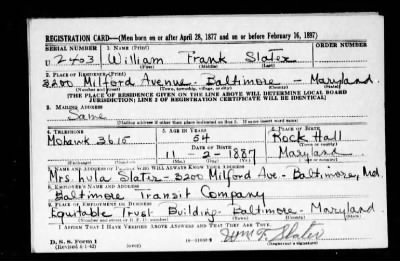 REGISTRATION CARD—(Men born on or after April 28, 1877 and on or before February 16, 1897)
SERIAL NUMBER 1. NAME (Print) ORDER NUMBER
U 2403 William Frank Slater
(First) (Middle) (Last)
2. PLACE OF RESIDENCE (Print)
3200 Milford Avenue - Baltimore - Maryland
(Number and street) (Town, township, village, or city) (County) (State)
[THE PLACE OF RESIDENCE GIVEN ON THE LINE ABOVE WILL DETERMINE LOCAL BOARD
JURISDICTION; LINE 2 OF REGISTRATION CERTIFICATE WILL BE IDENTICAL]
3. MAILING ADDRESS
Same
[Mailing address if other than place indicated on line 2. If same insert word same]
4. TELEPHONE 5. AGE IN YEARS 6. PLACE OF BIRTH
Mohawk 3615 54 Rock Hall
DATE OF BIRTH (Town or county)
11 - 2 - 1887 Maryland
(Exchange) (Number) (Mo.) (Day) (Yr.) (State or country)
7. NAME AND ADDRESS OF PERSON WHO WILL ALWAYS KNOW YOUR ADDRESS
Mrs. Lula Slater - 3200 Milford Ave - Baltimore, Md.
8. EMPLOYER'S NAME AND ADDRESS
Baltimore Transit Company
9. PLACE OF EMPLOYMENT OR BUSINESS
Equitable Trust Building - Baltimore - Maryland
(Number and street or R. F. D. number) (Town) (County) (State)
I AFFIRM THAT I HAVE VERIFIED ABOVE ANSWERS AND THAT THEY ARE TRUE.
D. S. S. Form 1 Wm F. Slater
(Revised 4-1-42) (over) (Registrant's signature)